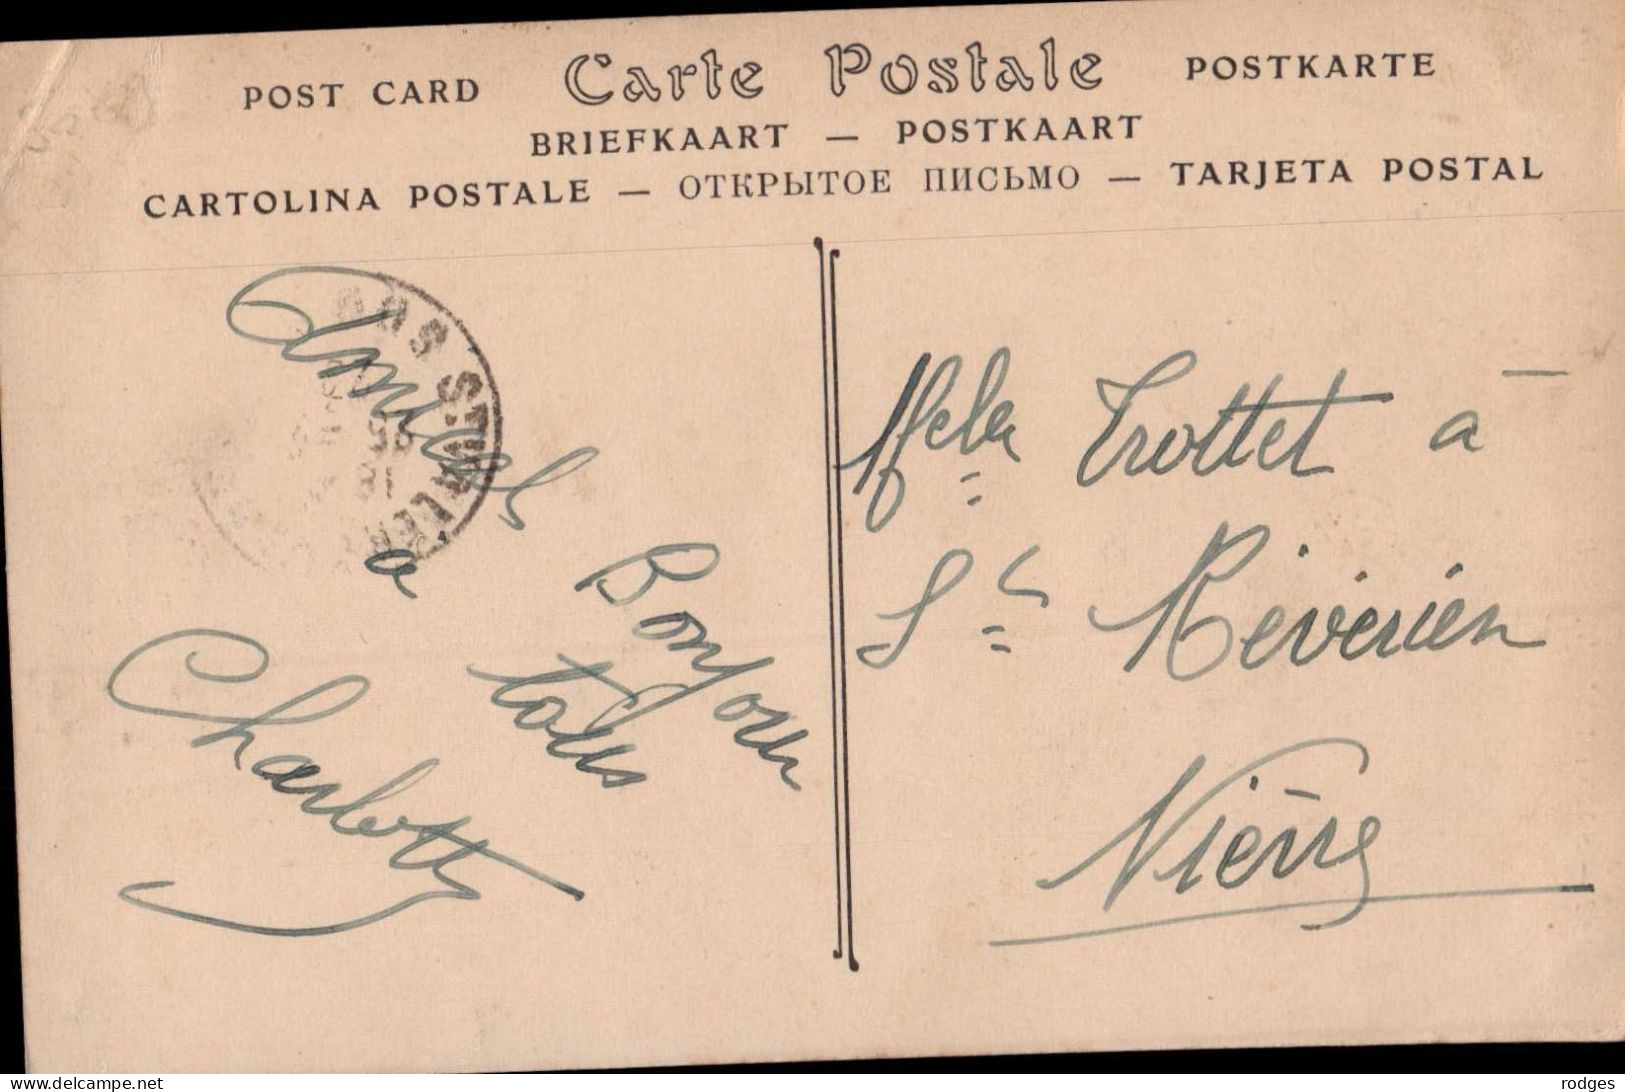 POST CARD Carte Postale POSTKARTE
BRIEFKAART — POSTKAART
CARTOLINA POSTALE — ОТКРЫТОЕ ПИСЬМО — TARJETA POSTAL
Amical Bonjour
à tous
Charlotte
Trottet à
St Reverien
Nièvre
Delcampe.net
rodges